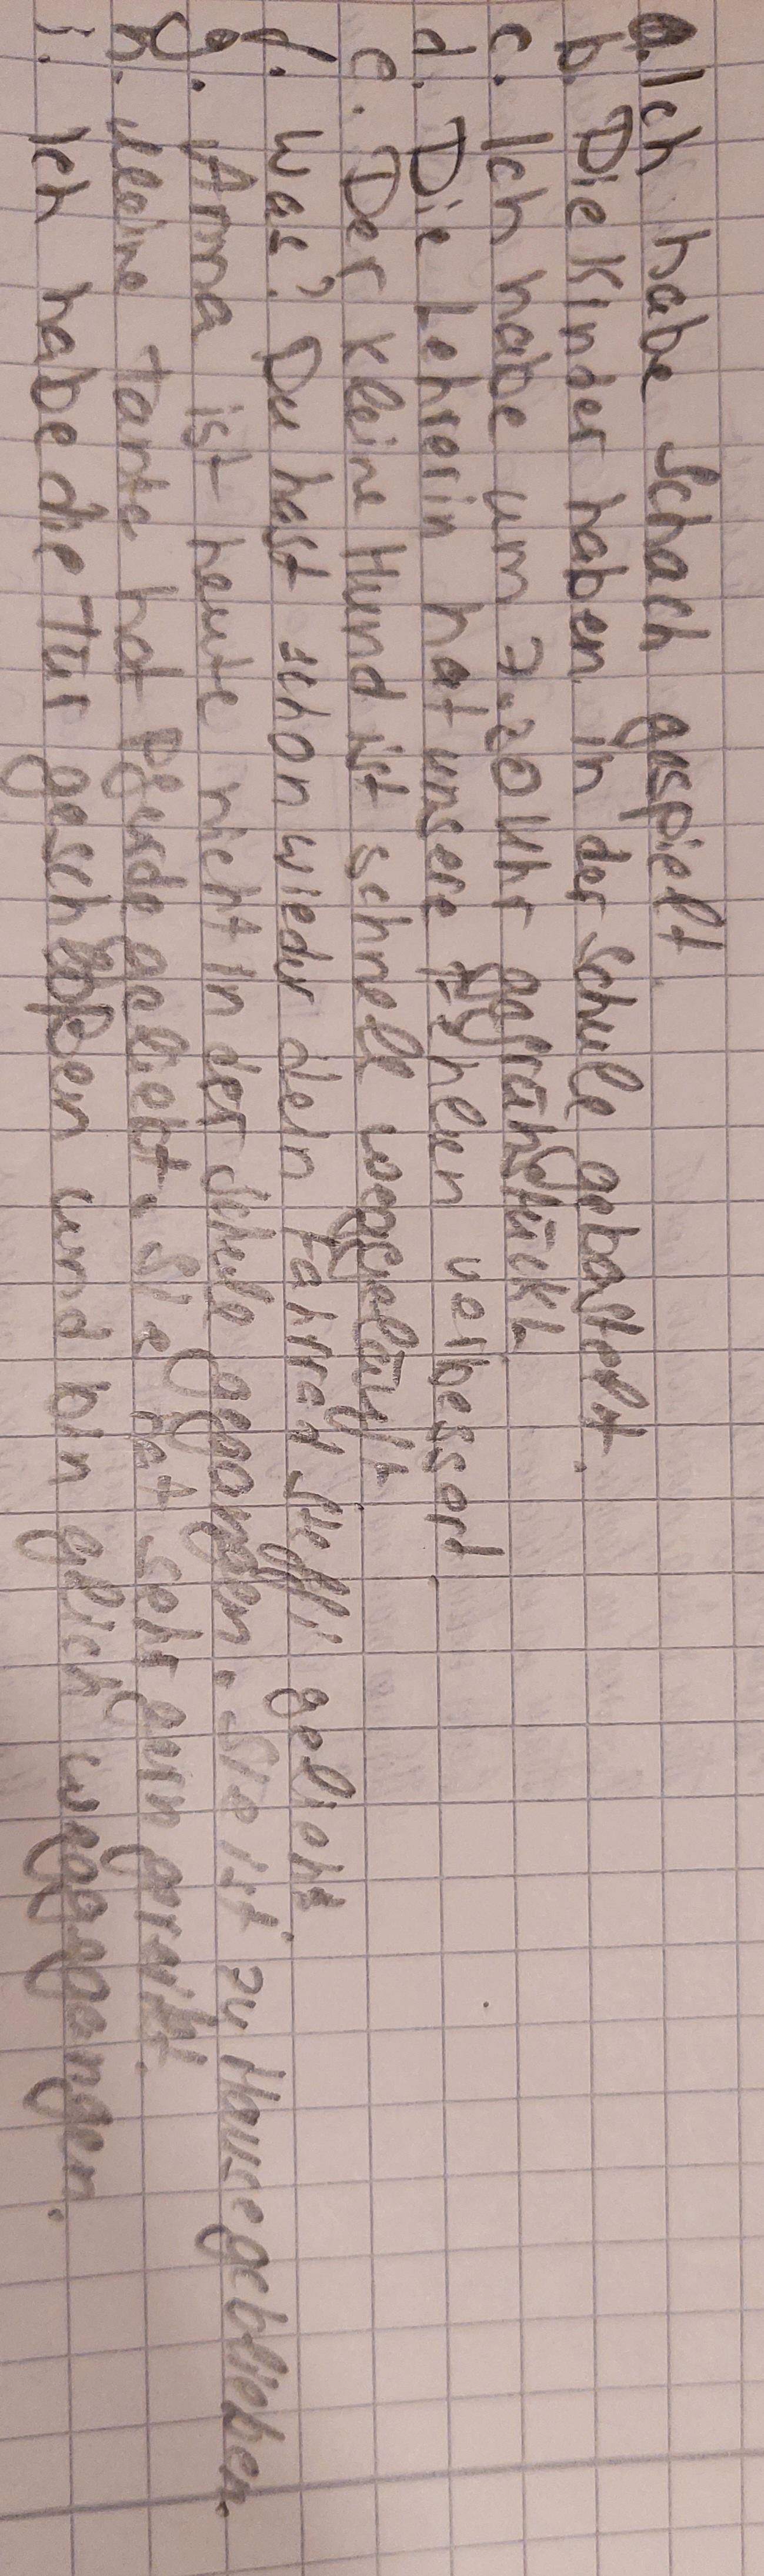 a. Ich habe Schach gespielt.
b. Die Kinder haben in der Schule gebastelt.
c. Ich habe um 7.20 Uhr gefrühstückt.
d. Die Lehrerin hat unsere verbessert.
e. Der kleine Hund ist schnell weggeläuft
f. Was? Du hast schon wieder dein Fahrrad Steffi
g. Anna ist heute nicht in der Schule gegangen. Sie ist zu Hause geblieben.
h. Meine Tante hat Pferde geliebt. Sie hat sehr gern
i. Ich habe die Tür und bin glich weggegangen.